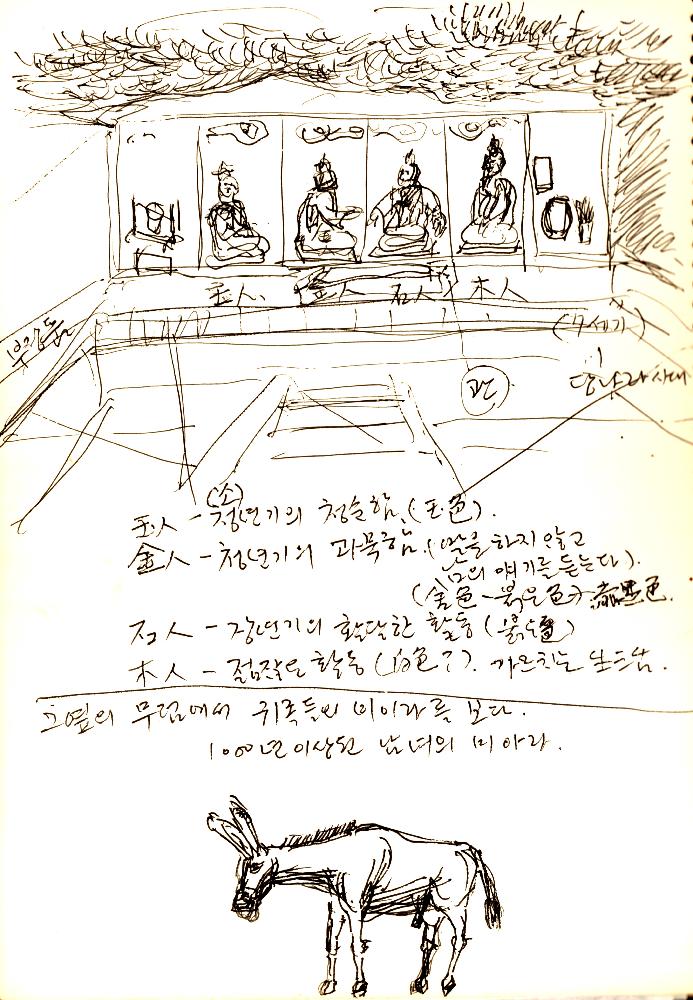 玉人 金人 石人 木人
(7세기)
당나라시대
관
(소)
玉人 - 청년기의 청순함. (玉色).
金人 - 청년기의 과묵함. (말을 하지 않고
남의 얘기를 듣는다).
(金色 - 붉은色) 赤黑色.
石人 - 장년기의 활달한 활동
木人 - 점잖은 활동 (白色?).
그옆의 무덤에서 귀족들의 미이라를 보다.
1000년이상된 남녀의 미이라.